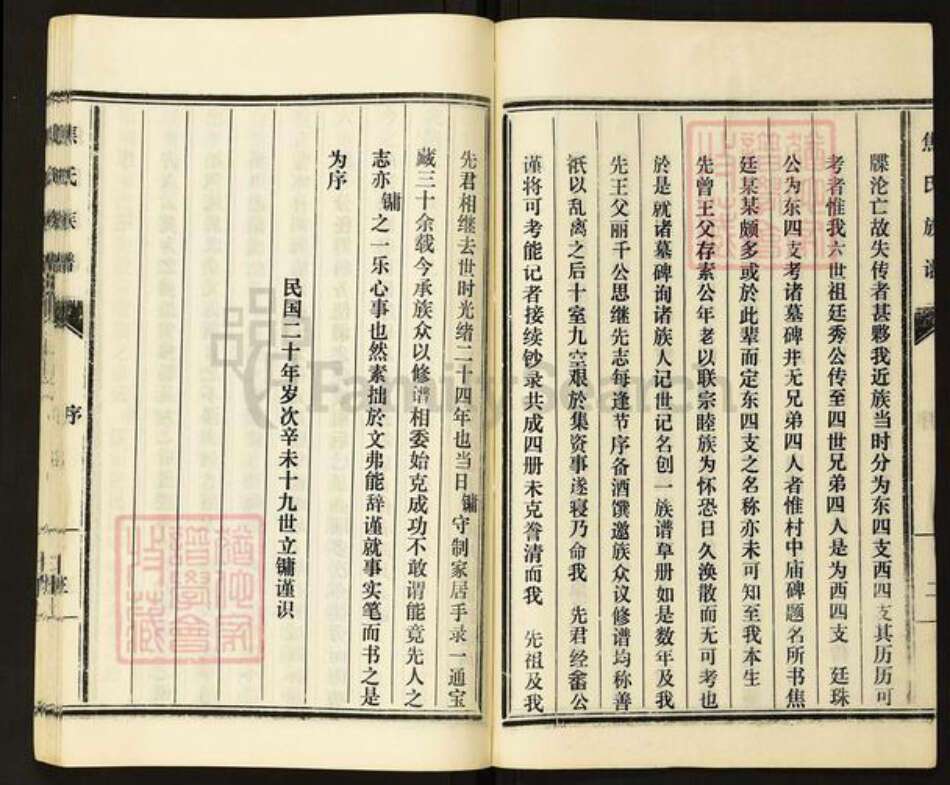 牒沦亡故失传者甚夥我近族当时分为东四支西四支其历历可
考者惟我六世祖廷秀公传至四世兄弟四人是为西四支 廷珠
公为东四支考诸墓碑并无兄弟四人者惟村中庙碑题名所书焦
廷某某颇多或於此辈而定东四支之名称亦未可知至我本生
先曾王父存素公年老以联宗睦族为怀恐日久涣散而无可考也
於是就诸墓碑询诸族人记世记名创一族谱草册如是数年及我
先王父丽千公思继先志每逢节序备酒馔邀族众议修谱均称善
祇以乱离之后十室九空艰於集资事遂寝乃命我 先君经畬公
谨将可考能记者接续钞录共成四册未克誊清而我 先祖及我
先君相继去世时光绪二十四年也当日镛守制家居手录一通宝
藏三十余载今承族众以修谱相委始克成功不敢谓能竟先人之
志亦镛之一乐心事也然素拙於文弗能辞谨就事实笔而书之是
为序
民国二十年岁次辛未十九世立镛谨识
焦氏族谱
序
二
焦氏族谱
FamilySearch